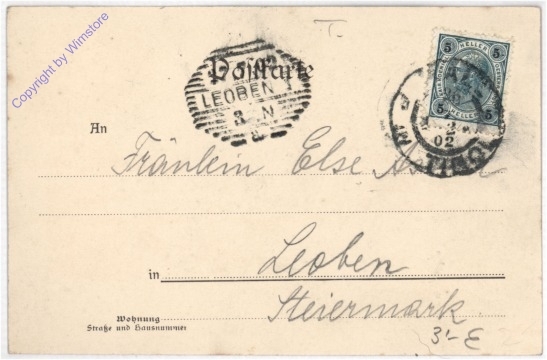 Copyright by Wimstore
T.
Postkarte
5 HELLER 5
5 HELLER 5
LEOBEN 1
3 N
8
02
An
Fräulein Else
in Leoben
Steiermark
Wohnung
Straße und Hausnummer
3'- E